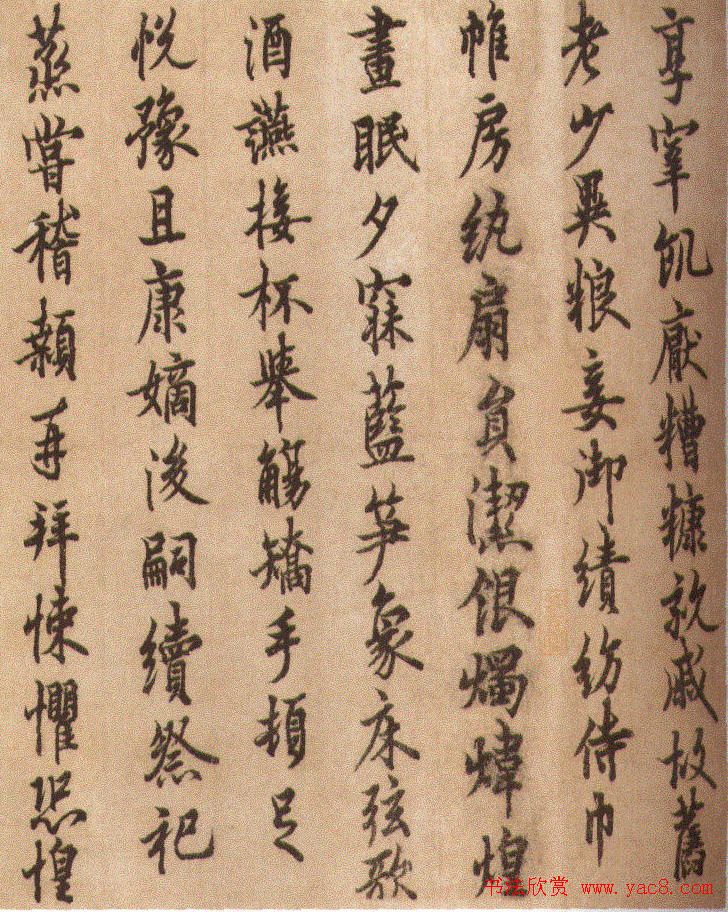 享宰飢厭糟糠親戚故舊
老少異粮妾御績紡侍巾
帷房紈扇員潔銀燭煒煌
晝眠夕寐藍笋象床弦歌
酒讌接杯舉觴矯手頓足
悅豫且康嫡後嗣續祭祀
蒸嘗稽顙再拜悚懼恐惶
书法欣赏 www.yac8.com